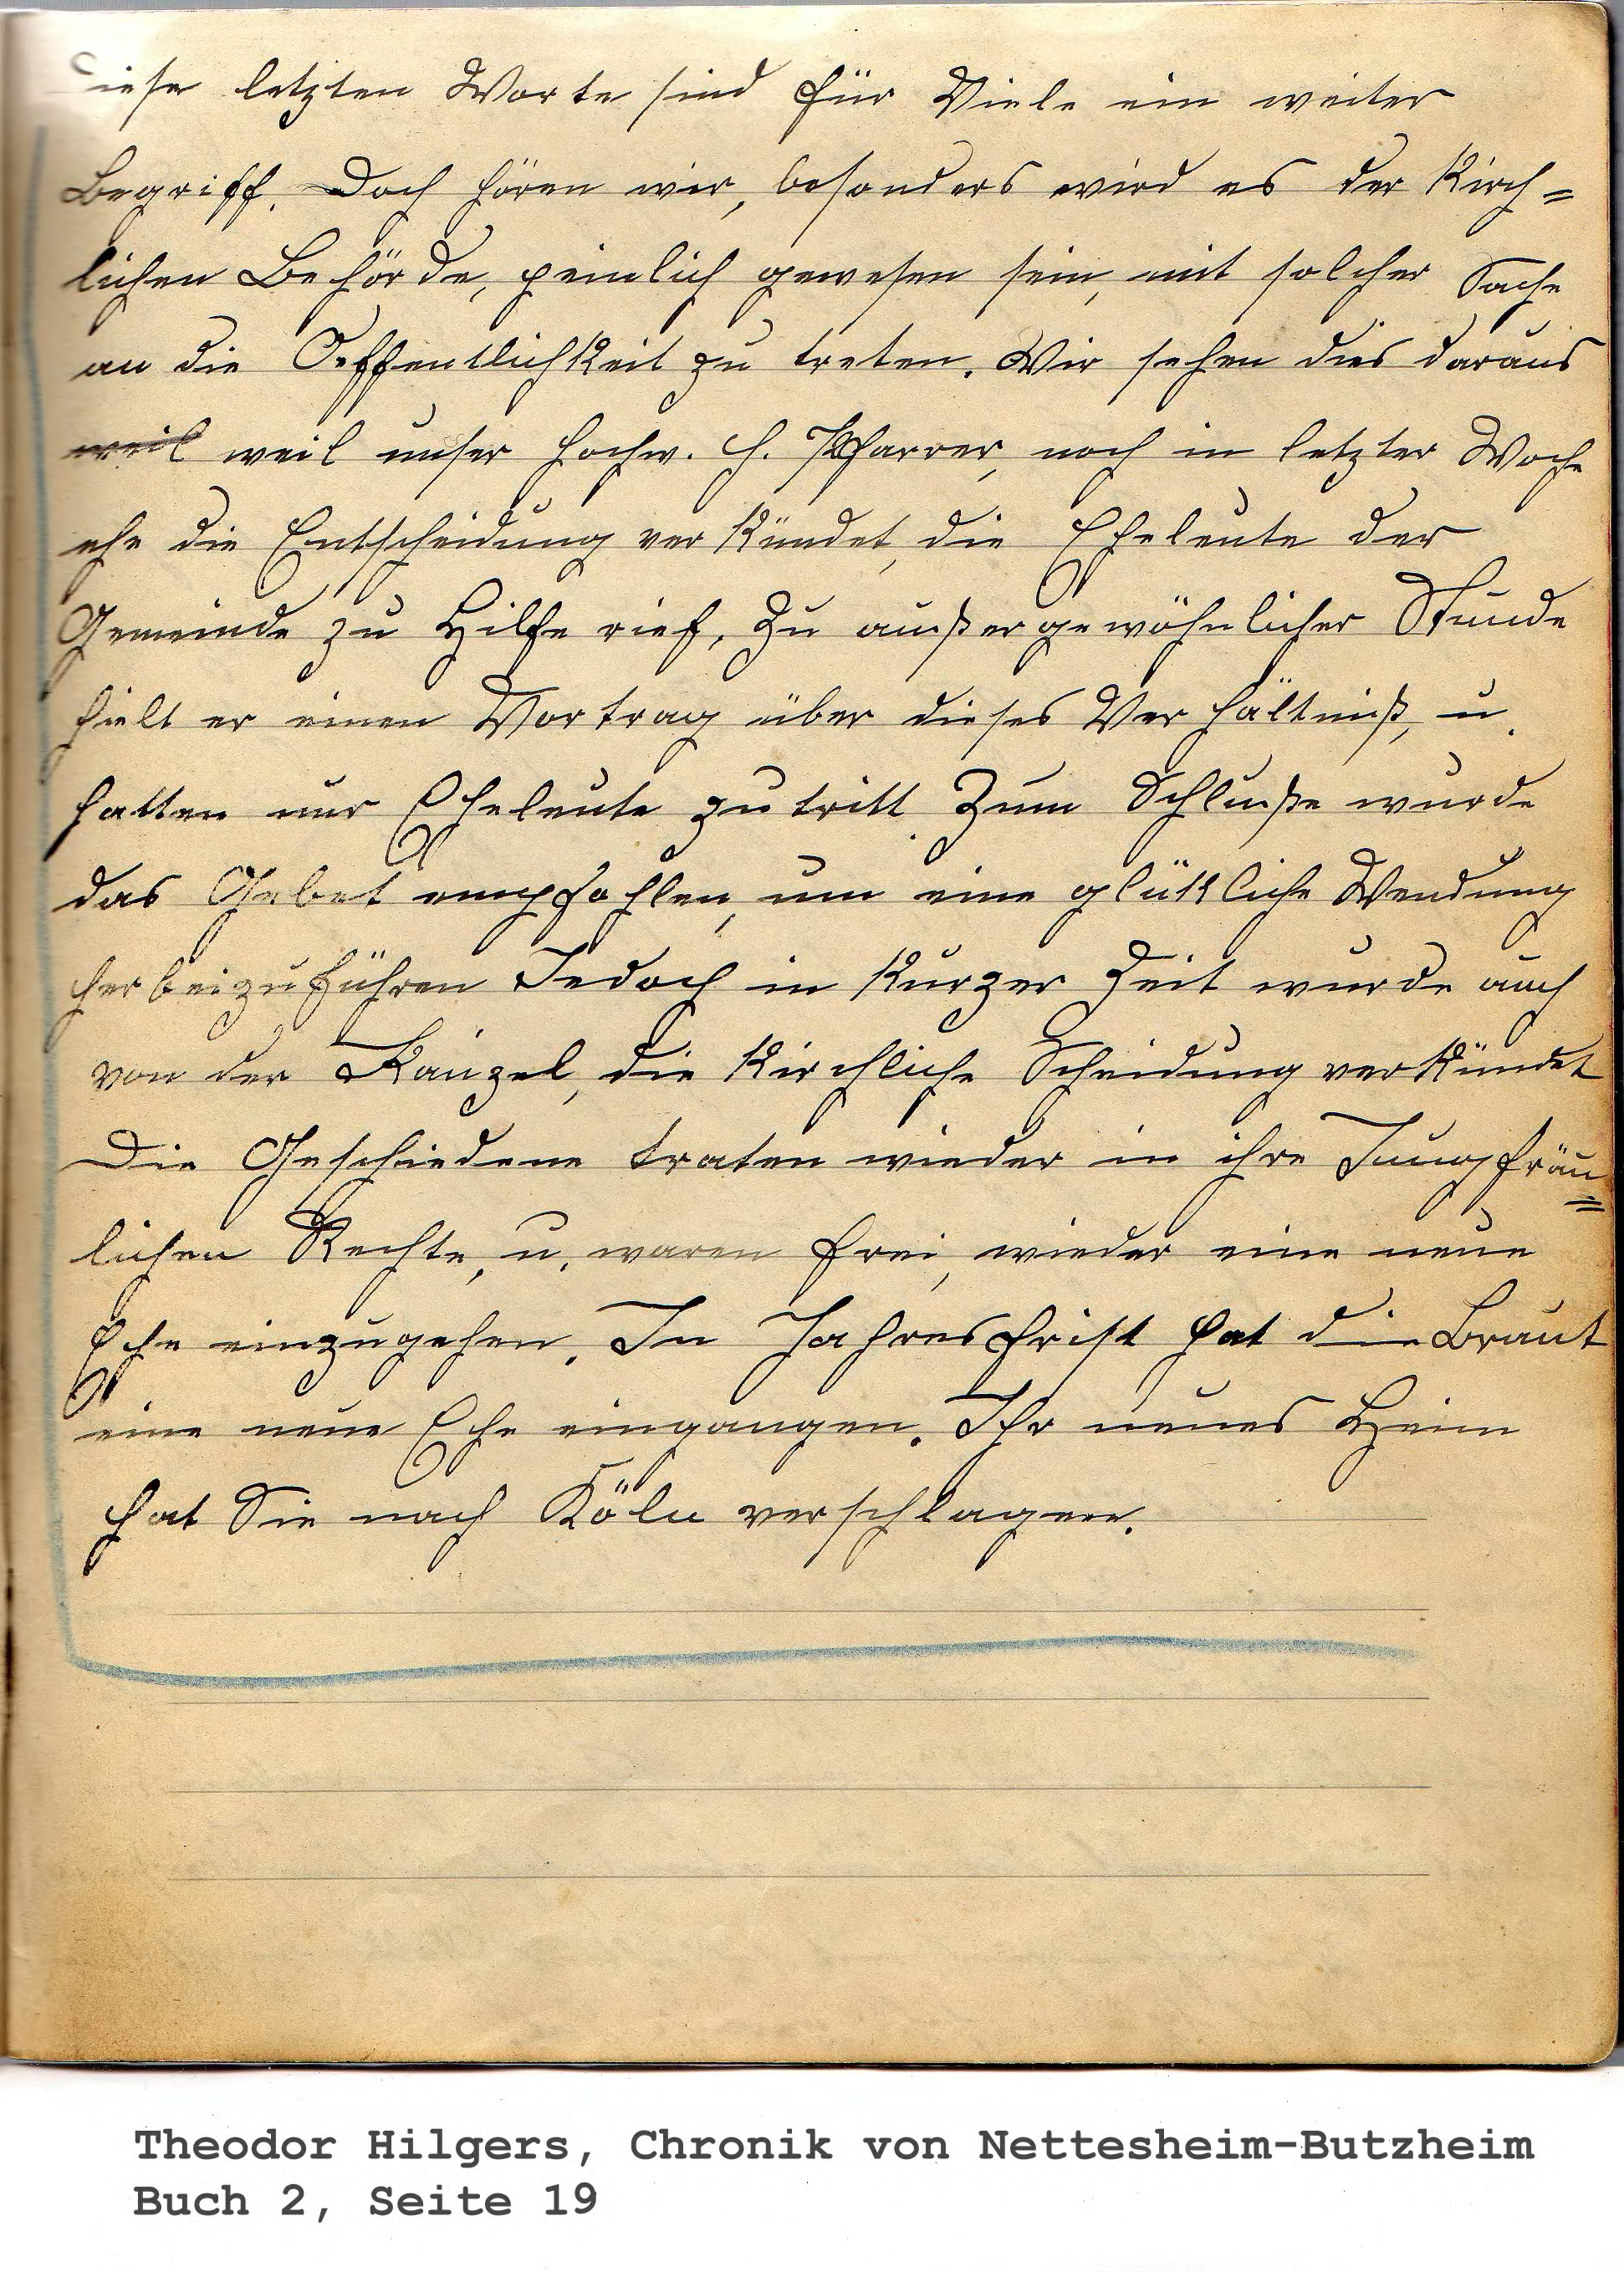 Diese letzten Worte sind für Viele ein weiter
Begriff. Doch hören wir, besonders wird es der Kirch=
lichen Behörde, peinlich gewesen sein, mit solcher Sache
an die Oeffentlichkeit zu treten. Wir sehen dies daraus
weil weil unser hochw. H. Pfarrer, noch in letzter Woche
ehe die Entscheidung verkündet, die Eheleute der
Gemeinde zu Hilfe rief. Zu außergewöhnlicher Stunde
hielt er einen Vortrag über dieses Verhältniß, u.
hatten nur Eheleute zutritt. Zum Schluße wurde
das Gebet empfohlen, um eine glükliche Wendung
herbeizuführen Jedoch in kurzer Zeit wurde auch
von der Kanzel, die kirchliche Scheidung verkündet
Die Geschiedene traten wieder in ihre Jungfräu=
lichen Rechte, u. waren frei, wieder eine neue
Ehe einzugehen. In Jahresfrist hat die Braut
eine neue Ehe eingangen. Ihr neues Heim
hat Sie nach Köln verschlagen.
Theodor Hilgers, Chronik von Nettesheim-Butzheim
Buch 2, Seite 19